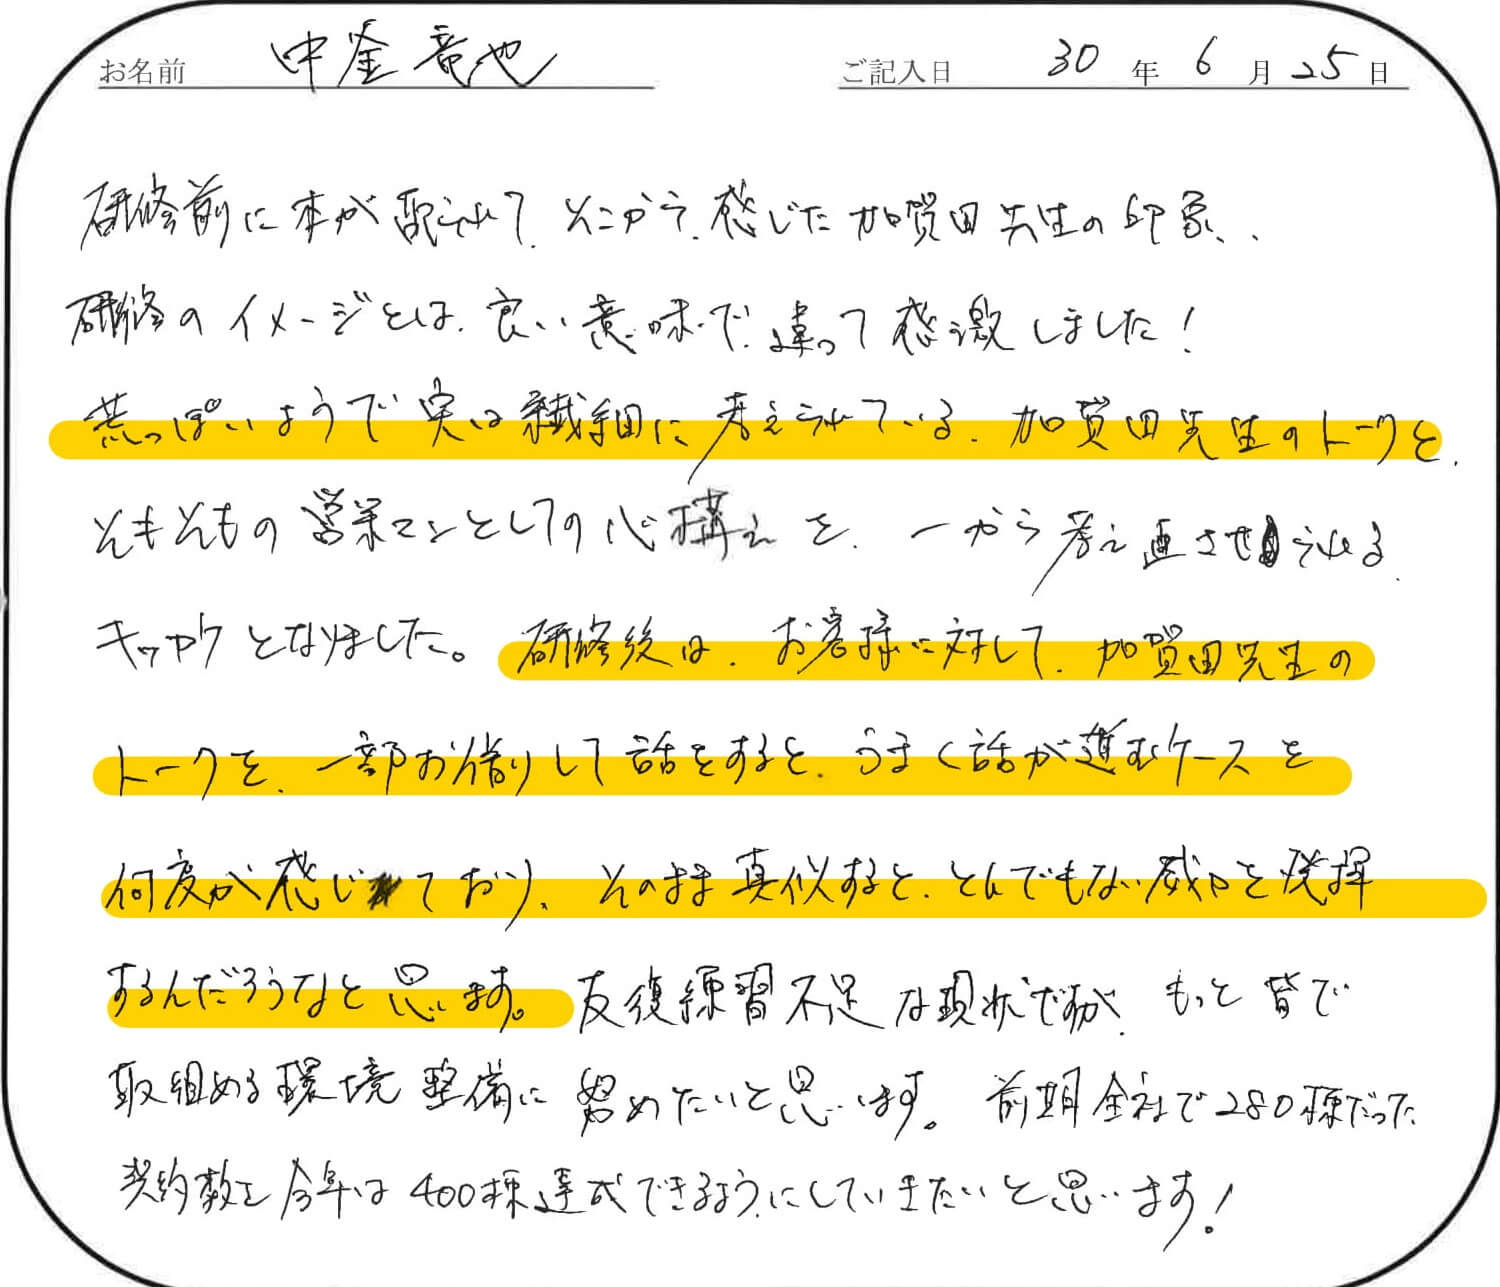 お名前 中釜竜也 ご記入日 30年6月25日
研修前に本が配られて、そこから、感じた加賀田先生の印象、、
研修のイメージとは、良い意味で、違って感激しました！
荒っぽいようで実は繊細に考えられている、加賀田先生のトークと、
そもそもの営業マンとしての心構えを、一から考え直させられる
キッカケとなりました。研修後は、お客様に対して、加賀田先生の
トークを、一部お借りして話をすると、うまく話が進むケースを
何度か感じており、そのまま真似すると、とんでもない威力を発揮
するんだろうなと思います。反復練習不足な現状ですが、もっと皆で
取組める環境整備に努めたいと思います。前期全社で280棟だった
契約数を今年は400棟達成できるようにしていきたいと思います！